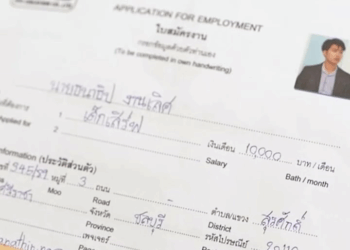 APPLICATION FOR EMPLOYMENT
ใบสมัครงาน
กรอกข้อมูลด้วยตัวท่านเอง
(To be completed in own handwriting)
นายธนาธิป งานเลิศ
ต้องการ 1 เด็กเสิร์ฟ เงินเดือน 10,000 บาท / เดือน
Applied for 2 Salary Bath / month
Information (ประวัติส่วนตัว)
หมู่ที่ 3 ถนน ตำบล/แขวง สุรศักดิ์
Moo Road District
ศรีราชา จังหวัด ชลบุรี รหัสไปรษณีย์
Province